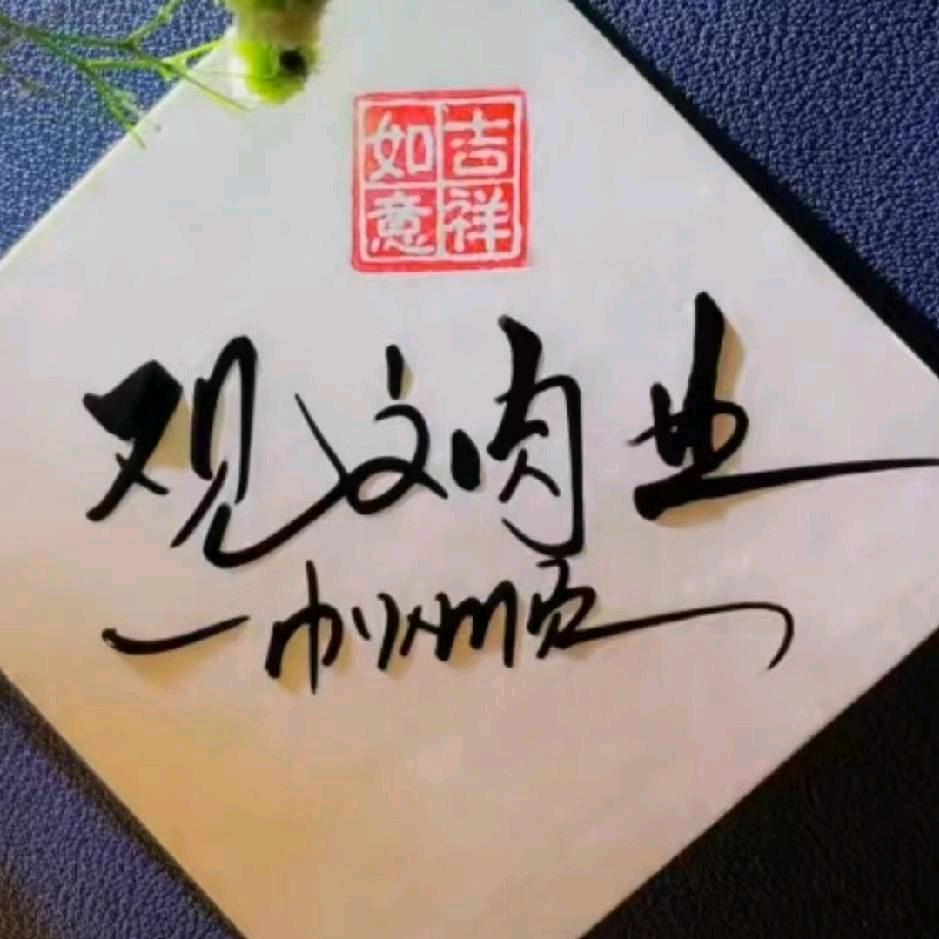 吉祥
如意
观文肉业
一帆风顺